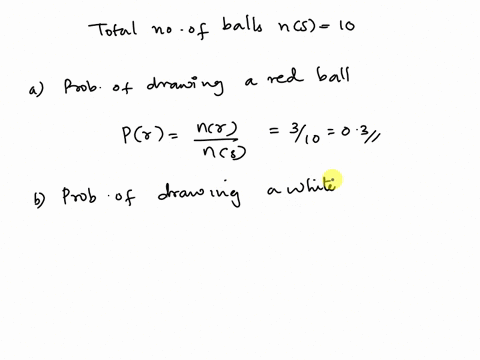 Total no. of balls n(s) = 10
a) Prob. of drawing a red ball
P(r) = n(r)/n(s) = 3/10 = 0.3//
b) Prob. of drawing a white